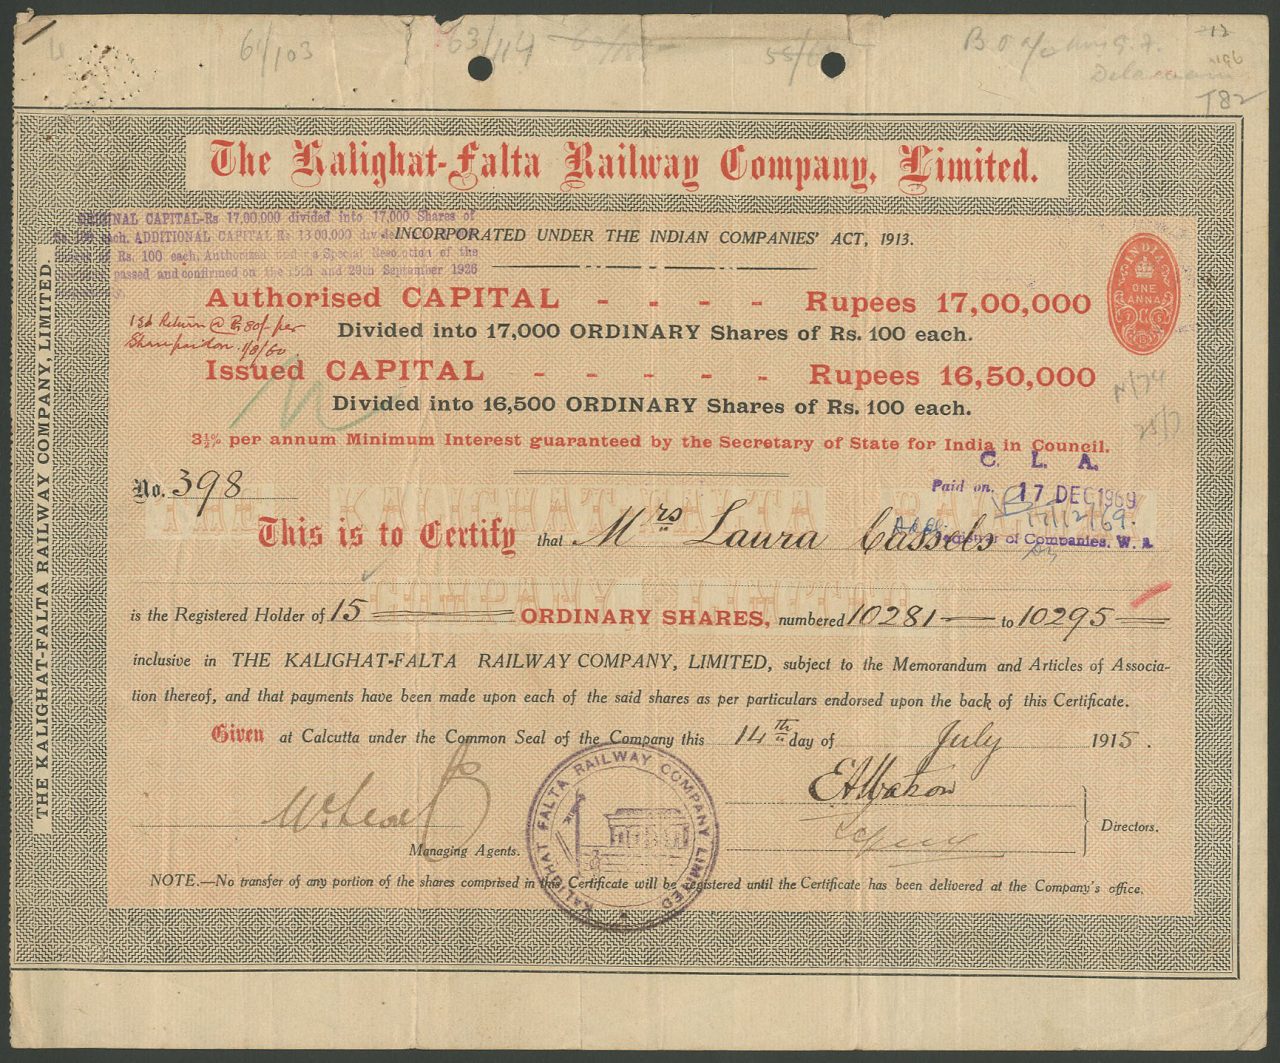 61/103
63/114
T82
The Kalighat-Falta Railway Company, Limited.
ORIGINAL CAPITAL-Rs 17,00,000 divided into 17,000 Shares of
Rs. 100 each. ADDITIONAL CAPITAL Rs 13 00,000
of Rs. 100 each, Authorized Special Resolution of the
passed and confirmed on the 15th and 29th September 1926
INCORPORATED UNDER THE INDIAN COMPANIES' ACT, 1913.
INDIA
ONE
ANNA
Authorised CAPITAL - - - - Rupees 17,00,000
Divided into 17,000 ORDINARY Shares of Rs. 100 each.
1st Return @ Rs 80/- per
Share paid on 1/8/60
Issued CAPITAL - - - - - Rupees 16,50,000
Divided into 16,500 ORDINARY Shares of Rs. 100 each.
3½% per annum Minimum Interest guaranteed by the Secretary of State for India in Council.
C. L. A.
Paid on. 17 DEC 1969
17/12/69.
Registrar of Companies, W. B
No. 398
THE KALIGHAT-FALTA RAILWAY
COMPANY, LIMITED
This is to Certify that Mrs Laura Cassels
is the Registered Holder of 15 ORDINARY SHARES, numbered 10281 to 10295
inclusive in THE KALIGHAT-FALTA RAILWAY COMPANY, LIMITED, subject to the Memorandum and Articles of Associa-
tion thereof, and that payments have been made upon each of the said shares as per particulars endorsed upon the back of this Certificate.
Given at Calcutta under the Common Seal of the Company this 14th day of July 1915.
EAWatson
Directors.
Managing Agents.
KALIGHAT FALTA RAILWAY COMPANY LIMITED
NOTE.—No transfer of any portion of the shares comprised in this Certificate will be registered until the Certificate has been delivered at the Company's office.
THE KALIGHAT-FALTA RAILWAY COMPANY, LIMITED.